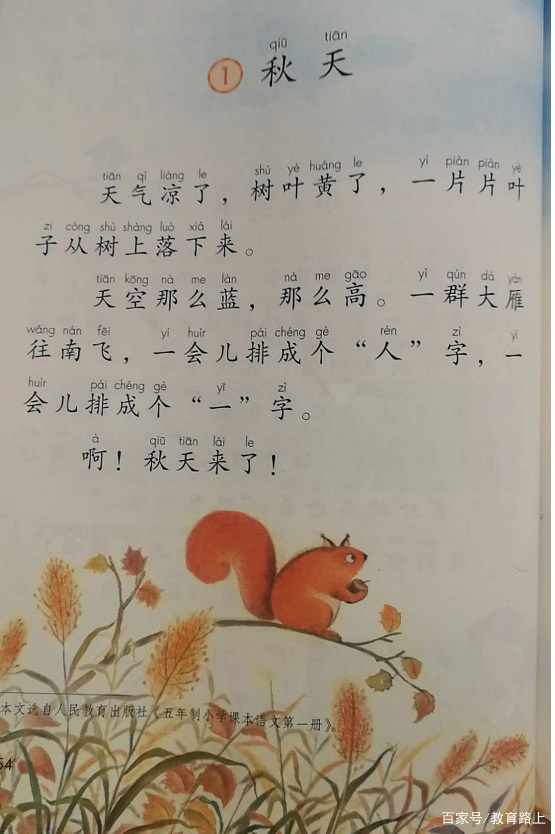 qiū tiān
① 秋天
tiān qì liáng le shù yè huáng le yí piàn piàn yè
天气凉了，树叶黄了，一片片叶
zi cóng shù shàng luò xià lái
子从树上落下来。
tiān kōng nà me lán nà me gāo yì qún dà yàn
天空那么蓝，那么高。一群大雁
wǎng nán fēi yí huìr pái chéng gè rén zì yí
往南飞，一会儿排成个“人”字，一
huìr pái chéng gè yī zì
会儿排成个“一”字。
à qiū tiān lái le
啊！秋天来了！
本文选自人民教育出版社《五年制小学课本语文第一册》。
54
百家号/教育路上